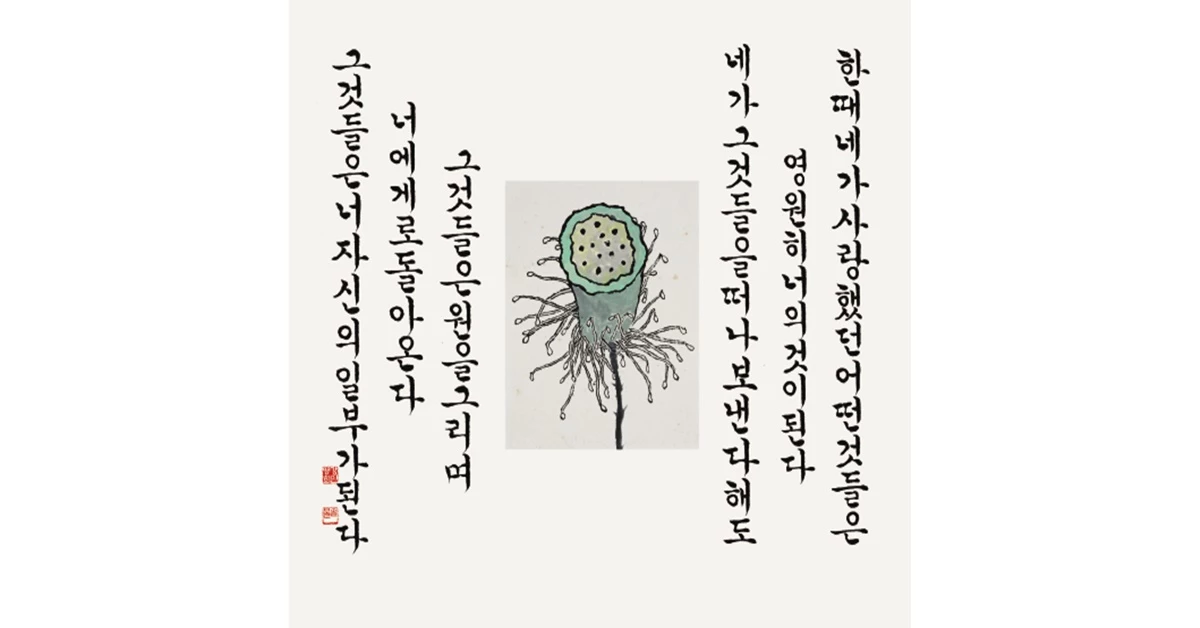 한때네가사랑했던어떤것들은
영원히너의것이된다
네가그것들을떠나보낸다해도
그것들은원을그리며
너에게로돌아온다
그것들은너자신의일부가된다